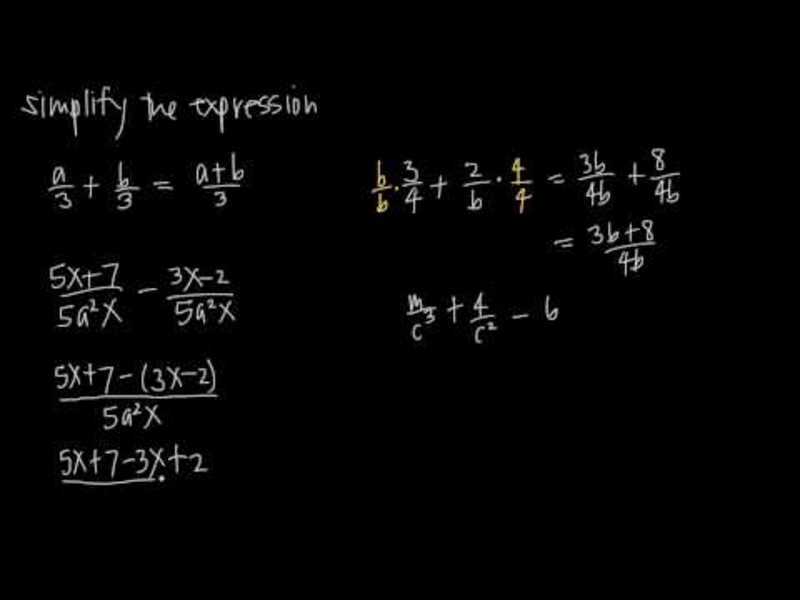 simplify the expression
a/3 + b/3 = a+b/3
5x+7/5a²x − 3x−2/5a²x
5x+7−(3x−2)/5a²x
5x+7−3x+2
b/b · 3/4 + 2/b · 4/4 = 3b/4b + 8/4b
= 3b+8/4b
m/c³ + 4/c² − 6